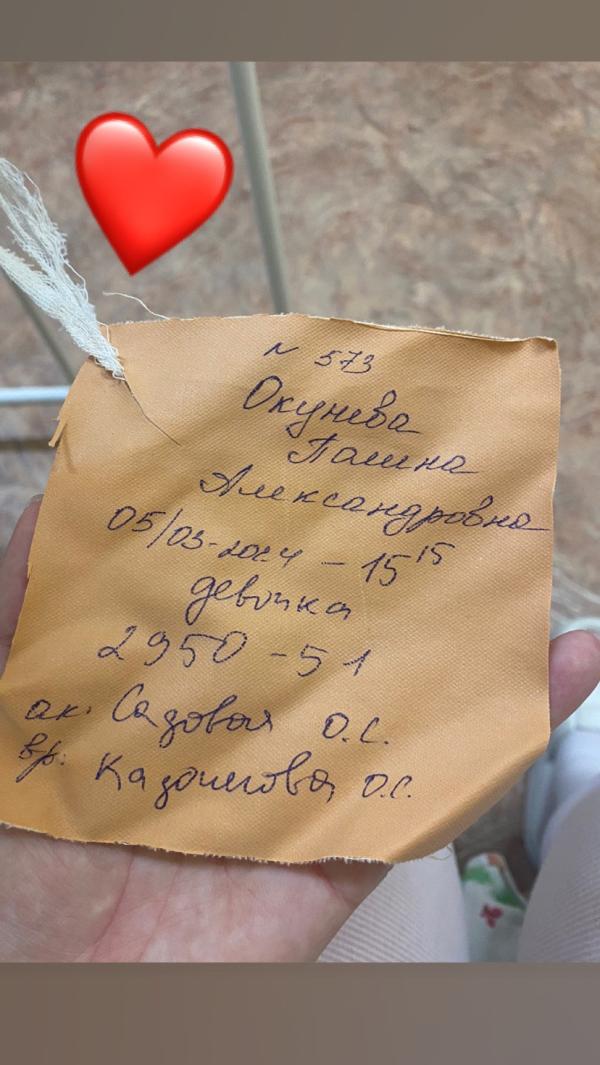 N 573
Окунева
Полина
Александровна
05/03-2024 - 15 15
девочка
2950 - 51
ак. Садовая О.С.
вр: О.С.